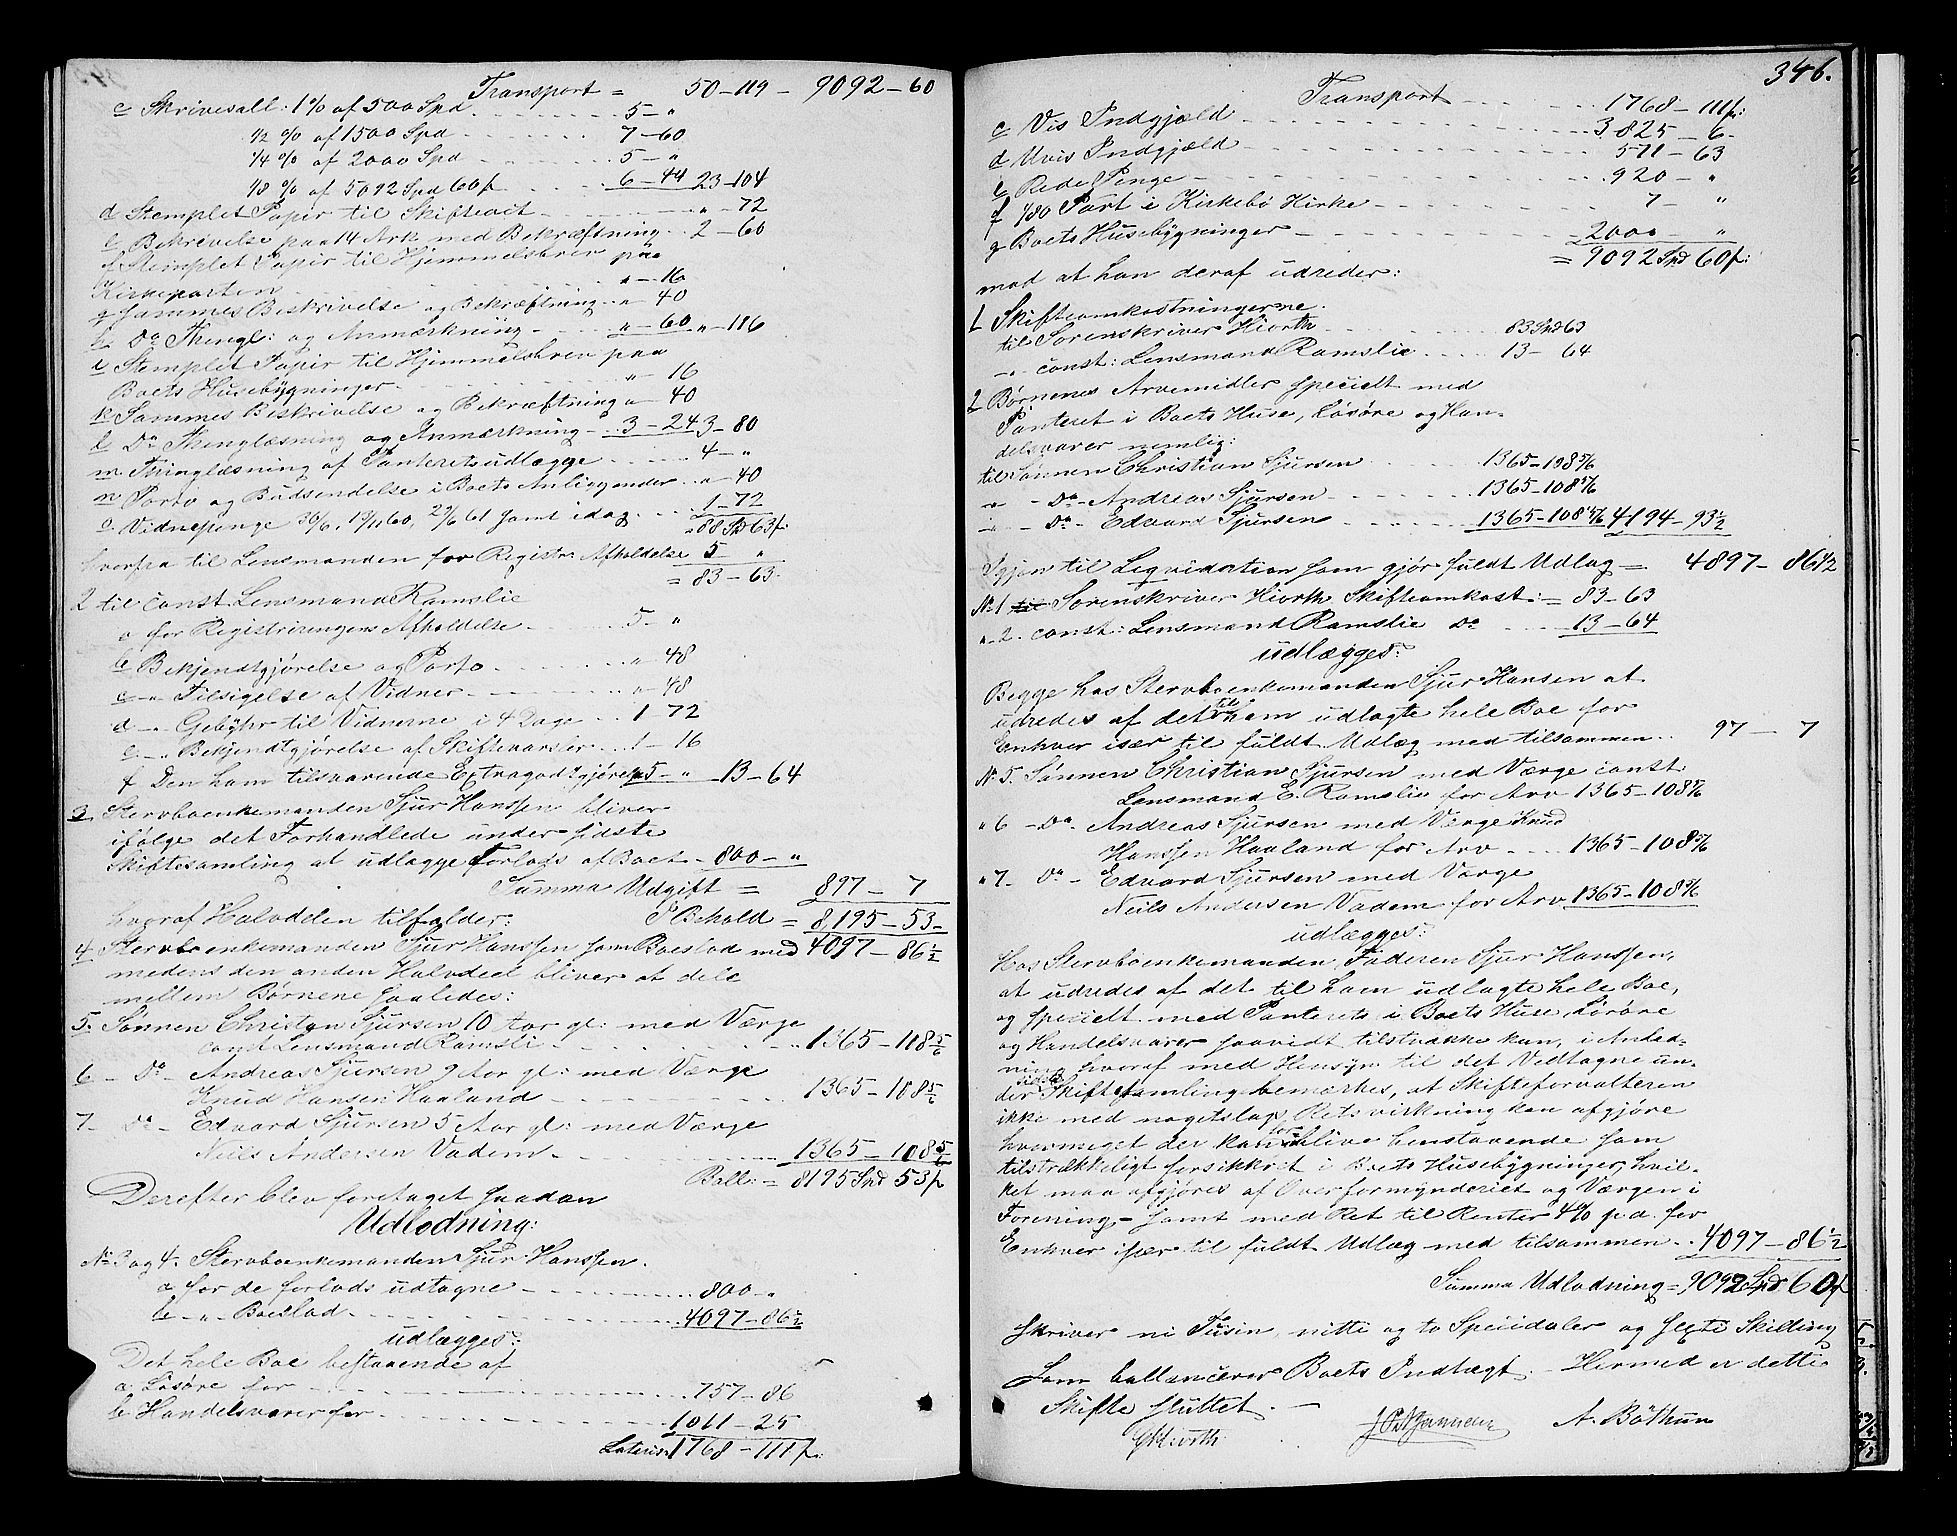 Transport = 50-119- 9092-60
c Skrivesall: 1% af 500 Spd 5- "
1/2 % af 1500 Spd 7-60
1/4 % af 2000 Spd 5- "
1/8 % af 5092 Spd 60ß 6-44 23-104
d Stemplet Papir til Skiftevit " -72
e Bekrivelse paa 14 Ark med Bekræftning 2-60
f Stemplet Papir til Hjemmelsbrev paa
Kirkeparten " -16
g Sammes Beskrivelse og Bekræftning " 40
h Do Thingl: og Anmærkning " -60 " -116
i Stemplet Papir til Hjemmelsbrev paa
Boets Husebygninger " -16
k Sammes Beskrivelse og Bekræftning " 40
l Do Thinglæsning og Anmærkning 3-24 3-80
m Thinglæsning af Panteretsudlægge 4- "
n Porto og Budsendelse i Boets Anliggender " 40
o Vidnepenge 30/6, 19/11 60, 29/6 61 samt idag 1-72
" 88 Spd 63ß:
hvorfra til Lensmanden for Registr: Afholdelse 5 "
= 83-63.
2 til const. Lensmand Ramslie
a for Registreringens Afholdelse 5- "
b Bekjendtgjørelse og Porto " 48
c -"- Tilsigelse af Vidner " 48
d -"- Gebyhr til Vidnerne i 4 Dage 1-72
e -"- Bekjendtgjørelse af Skiftevarsler 1-16
f Den ham tilsvarende Extragodtgjørelse 5- " 13-64
3 Stervboenkemanden Sjur Hanssen bliver
ifølge det Forhandlede under sidste
Skiftesamling at udlægge Forlods af Boet 800- "
Summa Udgift = 897-7
I Behold = 8,195-53-
hvoraf Halvdelen tilfalder:
4 Stervboenkemanden Sjur Hanssen som Boeslod med 4097-86½
medens den anden Halvdeel bliver at dele
mellem Børnene saaledes:
5. Sønnen Christan Sjursen 10 Aar gl: med Værge
const Lensmand Ramsli 1365-108 5/6
6- Do- Andreas Sjursen 9 Aar gl: med Værge
Knud Hansen Haaland 1365-108 5/6
7- Do- Edvard Sjursen 5 Aar gl: med Værge
Neils Andersen Vadem 1365-108 5/6
Ball: = 8195 Spd 53ß
Derefter blev foretaget saadan
Udlodning:
No 3 og 4. Stervboenkemanden Sjur Hanssen.
a for de forlods udtagne 800- "
b -"- Boeslod 4097-86½
udlægges:
Det hele Boe bestaaende af
a Løsøre for 757-86
b Handelsvarer for 1011-25
Lateris 1768-111ß:
346.
Transport 1768-111ß:
c Vis Indgjæld 3825-6-
d Uvis Indgjæld 571-63
e Rede Penge 920- "
f 1/80 Part i Kirkebø Kirke 7- "
g Boets Husebygninger 2000 "
= 9092 Spd 60ß:
mod at han deraf udreder:
1 Skifteomkostningerne.
til Sorenskriver Hiorth 83 Spd 63
-"- const: Lensmand Ramslie 13-64
2 Børnenes Arvemidler specielt med
Panteret i Boets Huse, Løsøre og Han-
delsvarer nemlig:
til Sønnen Christian Sjursen 1365-108 5/6
-"- Do- Andreas Sjursen 1365-108 5/6
-"- Do- Edvard Sjursen 1365-108 5/6 4194-93½
Igjen til Liqvidation som gjør fuldt Udlæg = 4897-86½
No 1 til Sorenskriver Hiorth Skifteomkost: = 83-63
" 2. const: Lensmand Ramslie Do 13-64
udlægges:
Begge hos Stervboenkemanden Sjur Hansen at
udredes af det til ham udlagte hele Boe for
Enhver især til fuldt Udlæg med tilsammen 97-7
No 5. Sønnen Christian Sjursen med Værge const.
Lensmand E. Ramslie for Arv 1365-108 5/6
" 6 -Do- Andreas Sjursen med Værge Knud
Hanssen Haaland for Arv 1365-108 5/6
" 7- Do- Edvard Sjursen med Værge
Neils Andersen Vadem for Arv 1365-108 5/6
udlægges:
Hos Stervboenkemanden, Faderen Sjur Hanssen,
at udredes af det til ham udlagte hele Boe,
og specielt med Panterets i Boets Huse, Løsøre
og Handelsvarer saavidt tilstrække kan, i Anled-
ning hvoraf med Hensyn til det Vedtagne un-
der sidste Skiftesamling bemærkes, at Skifteforvalteren
ikke med nogetslags Retsvirkning kan afgjøre
hvormeget der kan for blive henstaaende som
tilstrækkeligt forsikkret i Boets Husebygninger, hvil-
ket maa afgjøres af Overformynderiet og Værgen i
Forening, - samt med Ret til Renter 4% p.a. for
Enhver især til fuldt Udlæg med tilsammen 4097-86½
Summa Udlodning = 9092 Spd 60ß
skriver ni Tusin, nitti og to Speciedaler og sexti Skilling
som ballancerer Boets Indtægt. - Hermed er dette
Skifte sluttet. -
GHiorth A. Bøthun